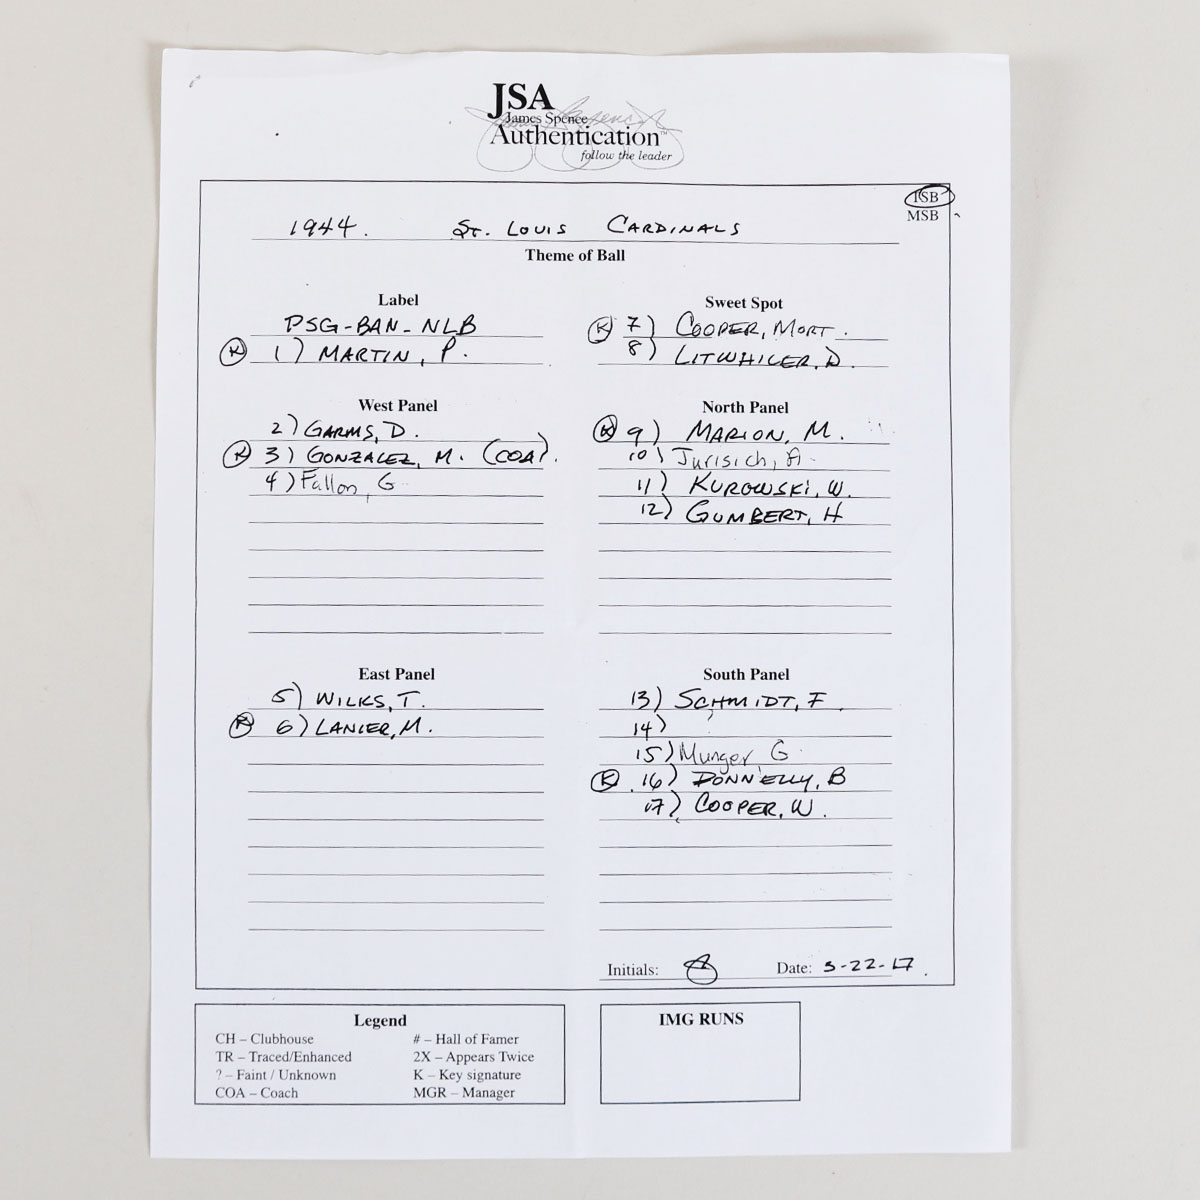 JSA
James Spence
Authentication™
follow the leader
ISB
MSB
1944. St. Louis Cardinals
Theme of Ball
Label
PSG-BAN-NLB
K 1) MARTIN, P.
West Panel
2) GARMS, D.
K 3) GONZALEZ, M. (COA).
4) Fallon, G
East Panel
5) WILKS, T.
K 6) LANIER, M.
Sweet Spot
K 7) COOPER, MORT.
8) LITWHILER, D.
North Panel
K 9) MARION, M.
10) Jurisich, A.
11) KUROWSKI, W.
12) GUMBERT, H
South Panel
13) SCHMIDT, F.
14) ?
15) Munger, G
K 16) DONNELLY, B
17) COOPER, W.
Initials:
Date: 3-22-17.
Legend
CH – Clubhouse
TR – Traced/Enhanced
? – Faint / Unknown
COA – Coach
# – Hall of Famer
2X – Appears Twice
K – Key signature
MGR – Manager
IMG RUNS